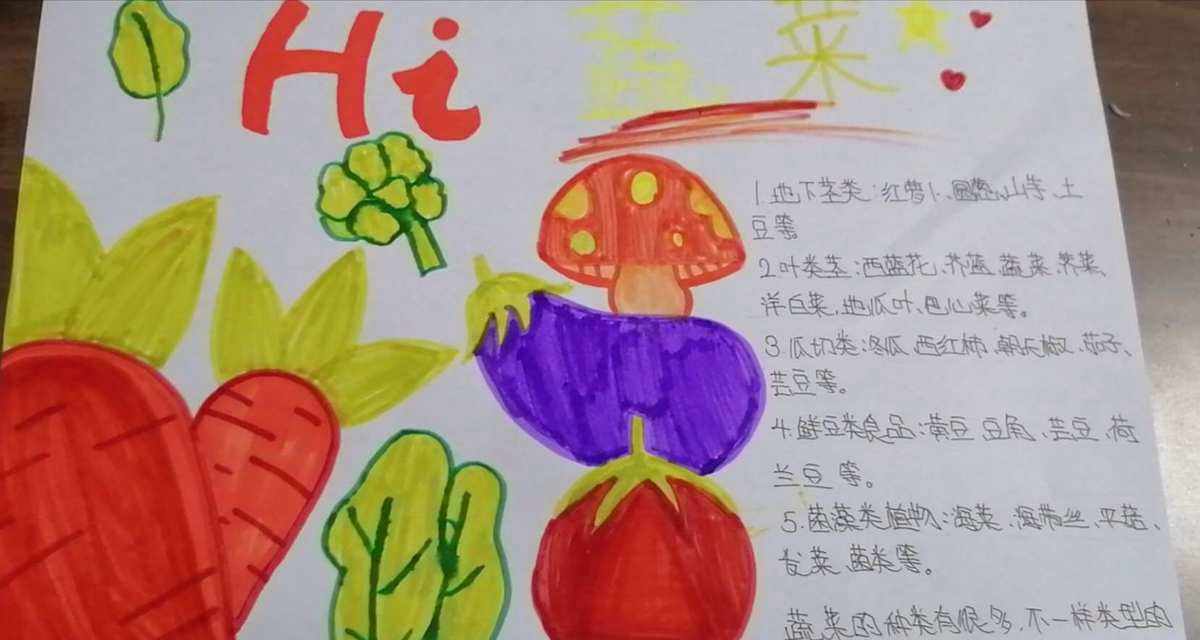 Hi 蔬菜
1.地下茎类:红萝卜、圆葱、山芋、土
豆等
2.叶类茎:西蓝花、芥蓝、蔬菜、荠菜、
洋白菜、地瓜叶、包心菜等。
3.瓜切类:冬瓜、西红柿、朝天椒、茄子、
芸豆等。
4.鲜豆类食品:黄豆、豆角、芸豆、荷
兰豆等。
5.菌藻类植物:海菜、海带丝、平菇、
发菜、菌类等。
蔬菜的种类有很多,不一样类型的